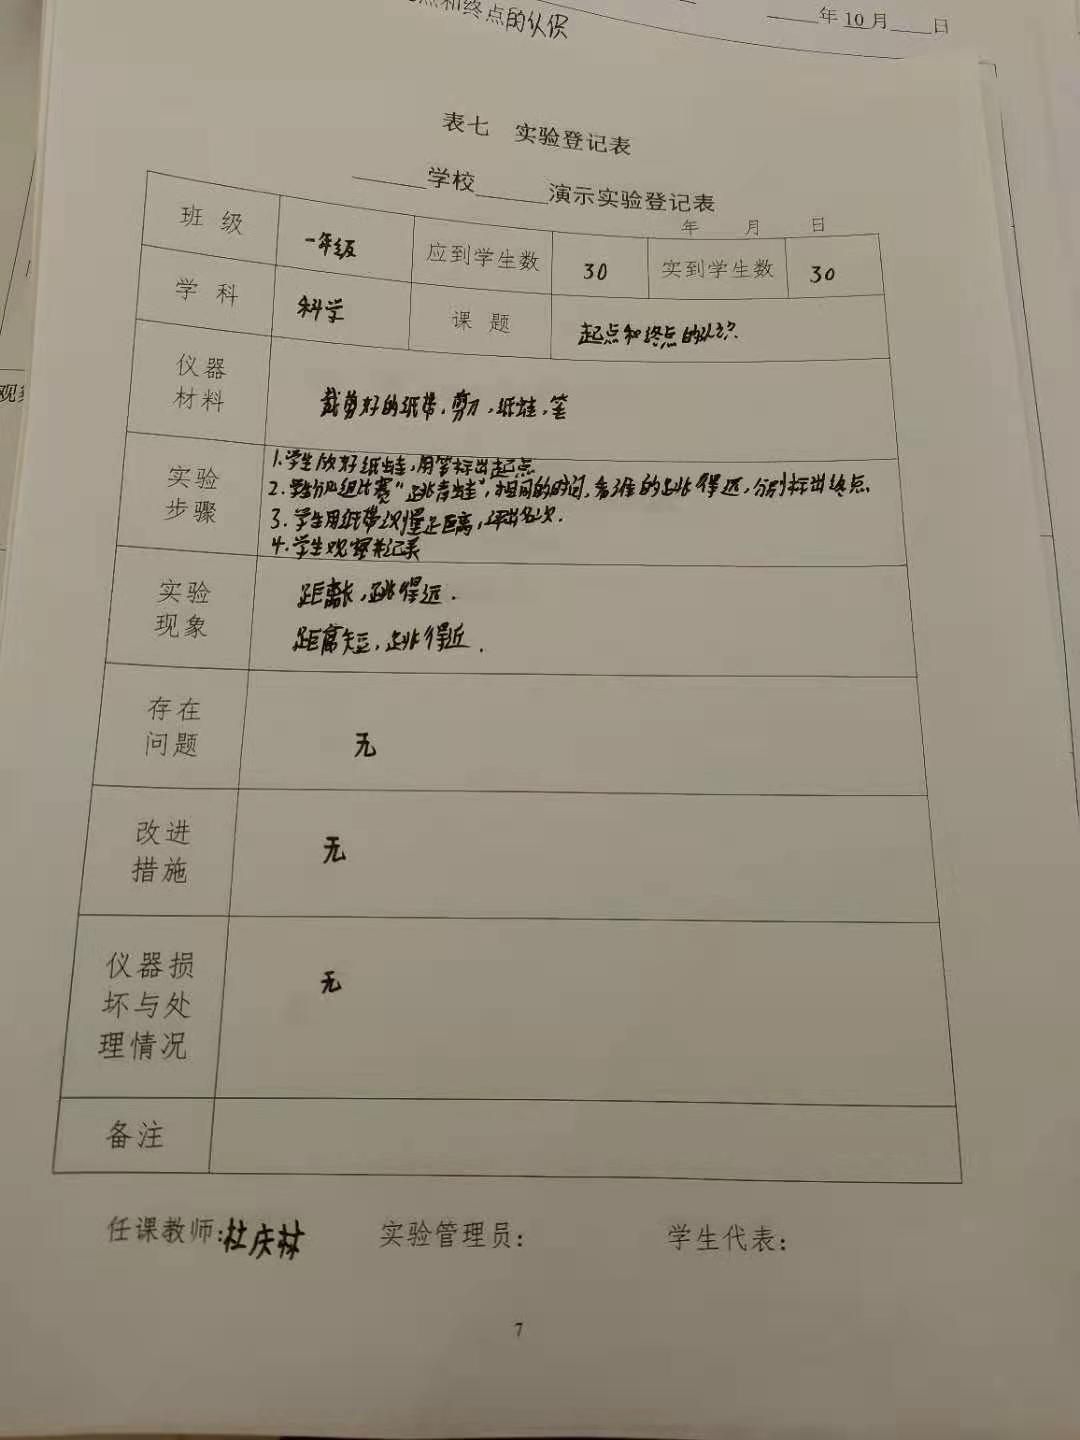 点和终点的认识
年 10 月 日
表七 实验登记表
学校 演示实验登记表
年 月 日
班 级 一年级 应到学生数 30 实到学生数 30
学 科 科学 课 题 起点和终点的认识
仪器
材料
裁剪好的纸带,剪刀,纸蛙,笔
实验
步骤
1.学生放好纸蛙,用笔标出起点
2.学生分四组比赛“跳青蛙”,相同的时间,看谁的跳得远,分别标出终点.
3.学生用纸带测量距离,评出名次.
4.学生观察并记录
实验
现象
距离长,跳得远.
距离短,跳得近.
存在
问题
无
改进
措施
无
仪器损
坏与处
理情况
无
备注
任课教师:杜庆林 实验管理员: 学生代表:
7